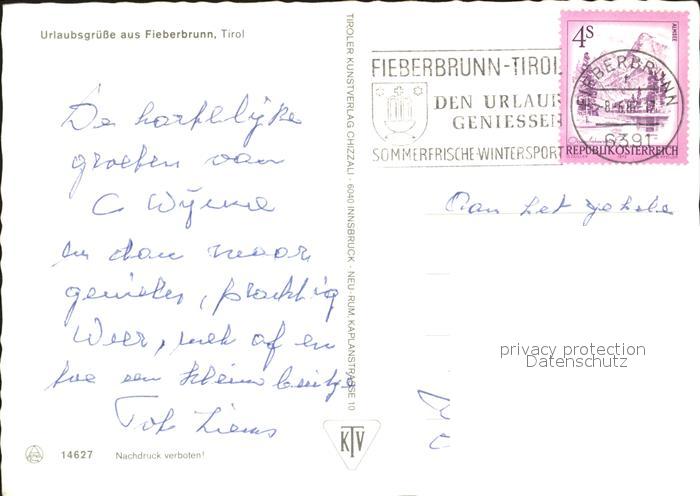 Urlaubsgrüße aus Fieberbrunn, Tirol
De hartelijke
groeten van
C Wijme
en dan maar
genieten, prachtig
Weer, met af en
toe een klein buitje
Tot Ziens
14627 Nachdruck verboten!
TIROLER KUNSTVERLAG CHIZZALI · 6040 INNSBRUCK - NEU-RUM, KAPLANSTRASSE 10
KTV
FIEBERBRUNN-TIROL
DEN URLAUB
GENIESSEN
SOMMERFRISCHE-WINTERSPORT
4S
ALMSEE
REPUBLIK ÖSTERREICH
FIEBERBRUNN
6391
Aan het gehele
privacy protection
Datenschutz